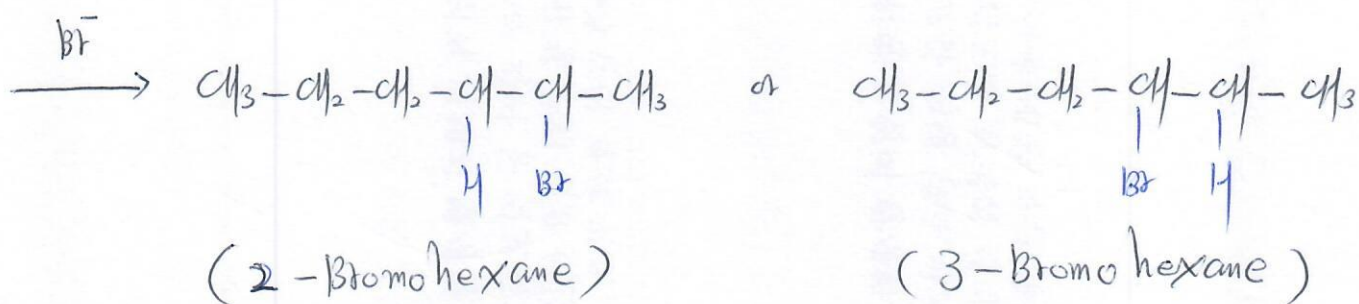 Br⁻
⟶ CH₃-CH₂-CH₂-CH-CH-CH₃ or CH₃-CH₂-CH₂-CH-CH-CH₃
H Br Br H
(2-Bromohexane) (3-Bromo hexane)